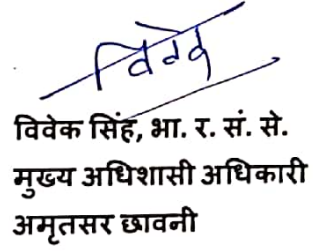 विवेक
विवेक सिंह, भा. र. सं. से.
मुख्य अधिशासी अधिकारी
अमृतसर छावनी